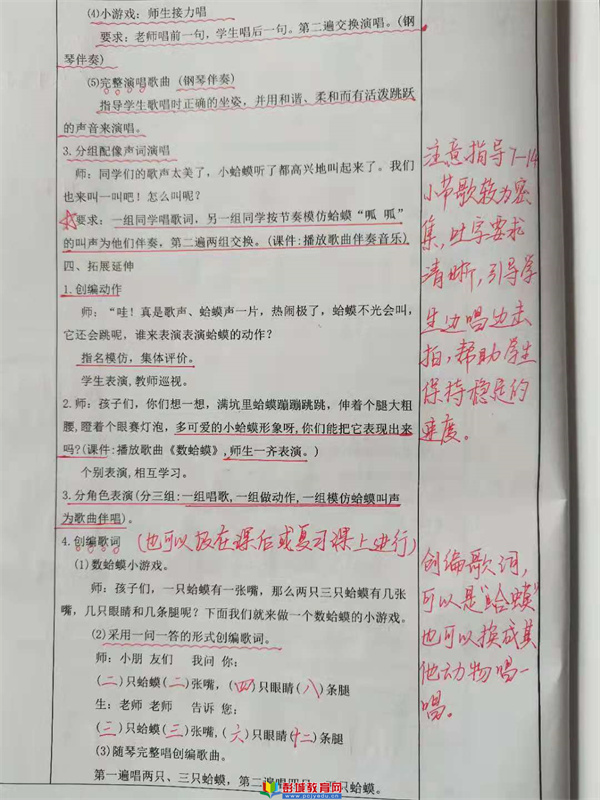 (4)小游戏：师生接力唱
要求：老师唱前一句，学生唱后一句。第二遍交换演唱。(钢
琴伴奏)
(5)完整演唱歌曲 (钢琴伴奏)
指导学生歌唱时正确的坐姿，并用和谐、柔和而有活泼跳跃
的声音来演唱。
3.分组配像声词演唱
师：同学们的歌声太美了，小蛤蟆听了都高兴地叫起来了。我们
也来叫一叫吧！怎么叫呢？
要求：一组同学唱歌词，另一组同学按节奏模仿蛤蟆“呱 呱”
的叫声为他们伴奏，第二遍两组交换。(课件:播放歌曲伴奏音乐)
四、拓展延伸
1.创编动作
师：“哇！真是歌声、蛤蟆声一片，热闹极了，蛤蟆不光会叫，
它还会跳呢，谁来表演表演蛤蟆的动作？
指名模仿，集体评价。
学生表演，教师巡视。
2.师：孩子们，你们想一想，满坑里蛤蟆蹦蹦跳跳，伸着个腿大粗
腰,瞪着个眼赛灯泡，多可爱的小蛤蟆形象呀,你们能把它表现出来
吗?(课件:播放歌曲《数蛤蟆》,师生一齐表演。)
个别表演,相互学习。
3.分角色表演(分三组:一组唱歌,一组做动作,一组模仿蛤蟆叫声
为歌曲伴唱)。
4.创编歌词 (也可以放在课后或复习课上进行)
(1)数蛤蟆小游戏。
师：孩子们，一只蛤蟆有一张嘴，那么两只三只蛤蟆有几张
嘴，几只眼睛和几条腿呢？下面我们就来做一个数蛤蟆的小游戏。
(2)采用一问一答的形式创编歌词。
师：小朋 友们 我问 你:
(二)只蛤蟆(二)张嘴,(四)只眼睛(八)条腿
生：老师 老师 告诉 您:
(三)只蛤蟆(三)张嘴,(六)只眼睛(十二)条腿
(3)随琴完整唱创编歌曲。
第一遍唱两只、三只蛤蟆，第二遍唱四只、五只蛤蟆。
注意指导7-14
小节歌较为密
集,吐字要求
清晰,引导学
生边唱边击
拍,帮助学生
保持稳定的
速度。
创编歌词,
可以是“蛤蟆”
也可以换成其
他动物唱一
唱。
彭城教育网
www.pcjyedu.cn